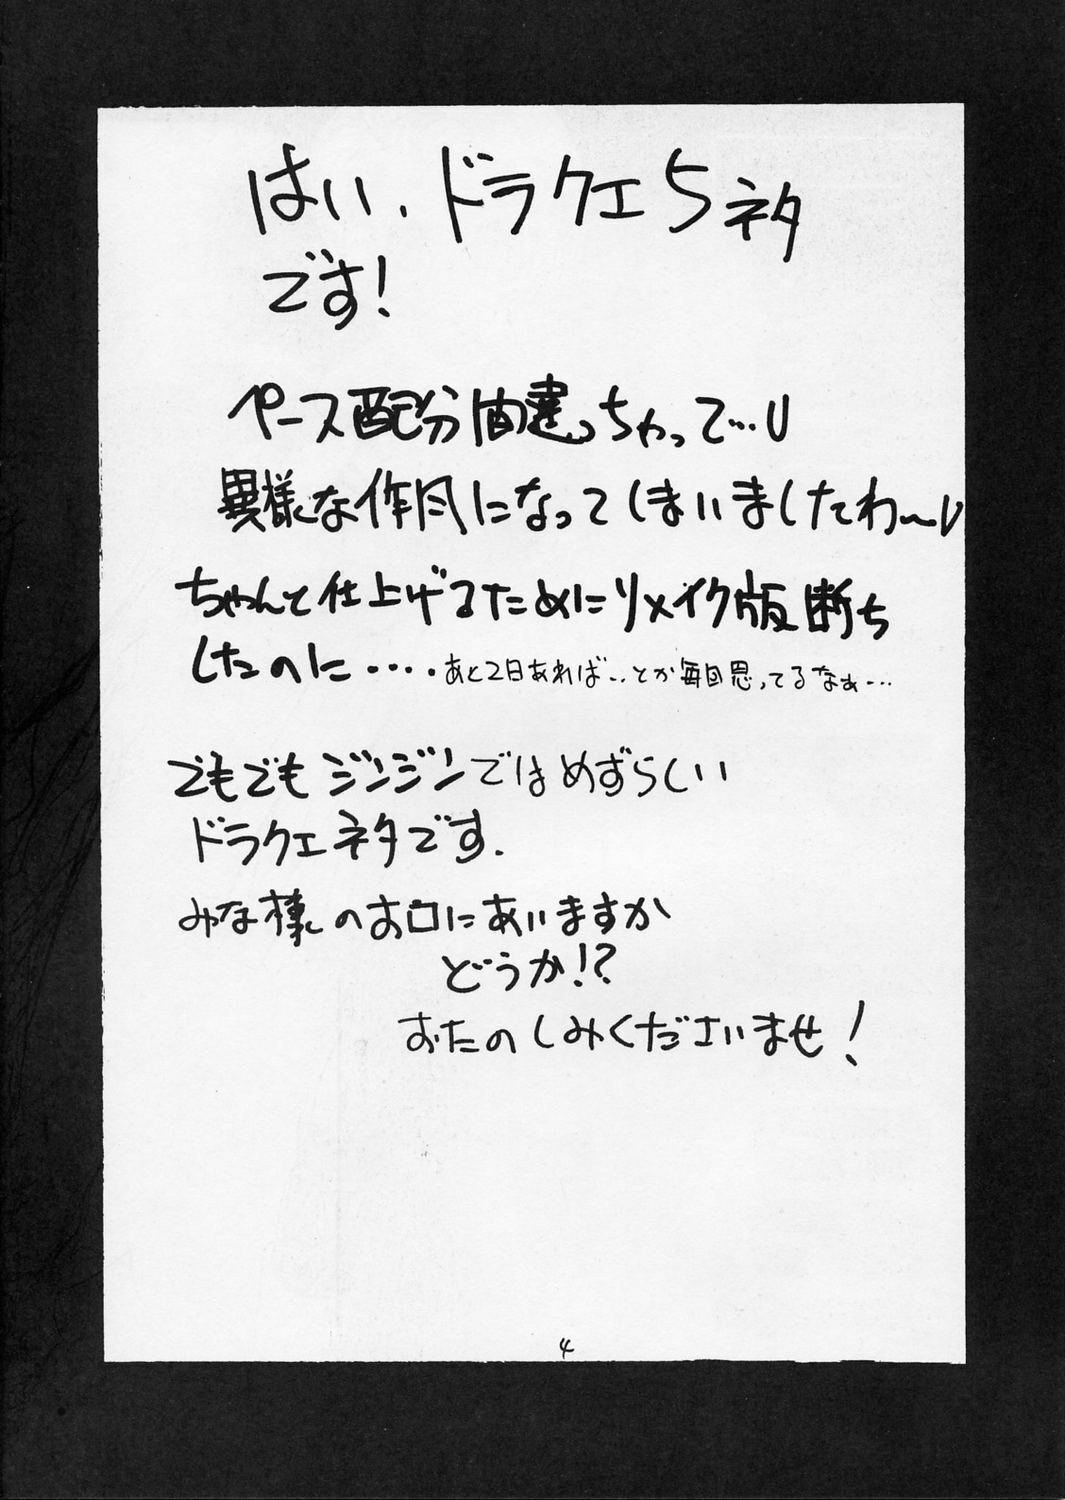 はい、ドラクエ5ネタ
です!
ペース配分間違っちゃって…
異様な作風になってしまいましたわ〜
ちゃんと仕上げるためにリメイク版断ち
したのに・・・・あと2日あれば・・とか毎回思ってるなぁ…
でもでもジンジンではめずらしい
ドラクエネタです.
みな様のお口にあいますか
どうか!?
おたのしみくださいませ!
4